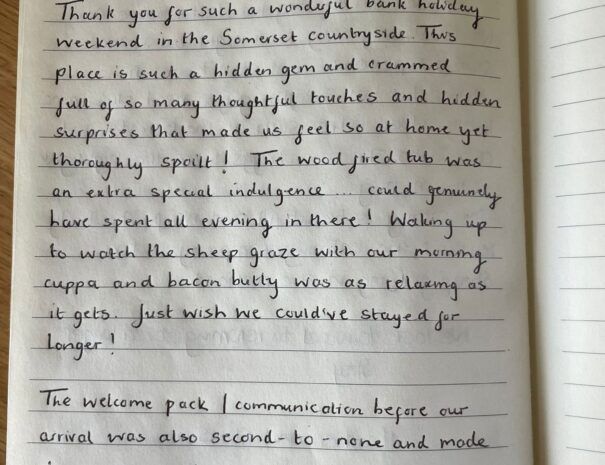 Thank you for such a wonderful bank holiday
weekend in the Somerset countryside. This
place is such a hidden gem and crammed
full of so many thoughtful touches and hidden
surprises that made us feel so at home yet
thoroughly spoilt! The wood fired tub was
an extra special indulgence ... could genuinely
have spent all evening in there! Waking up
to watch the sheep graze with our morning
cuppa and bacon butty was as relaxing as
it gets. Just wish we could've stayed for
longer!
The welcome pack / communication before our
arrival was also second-to-none and made